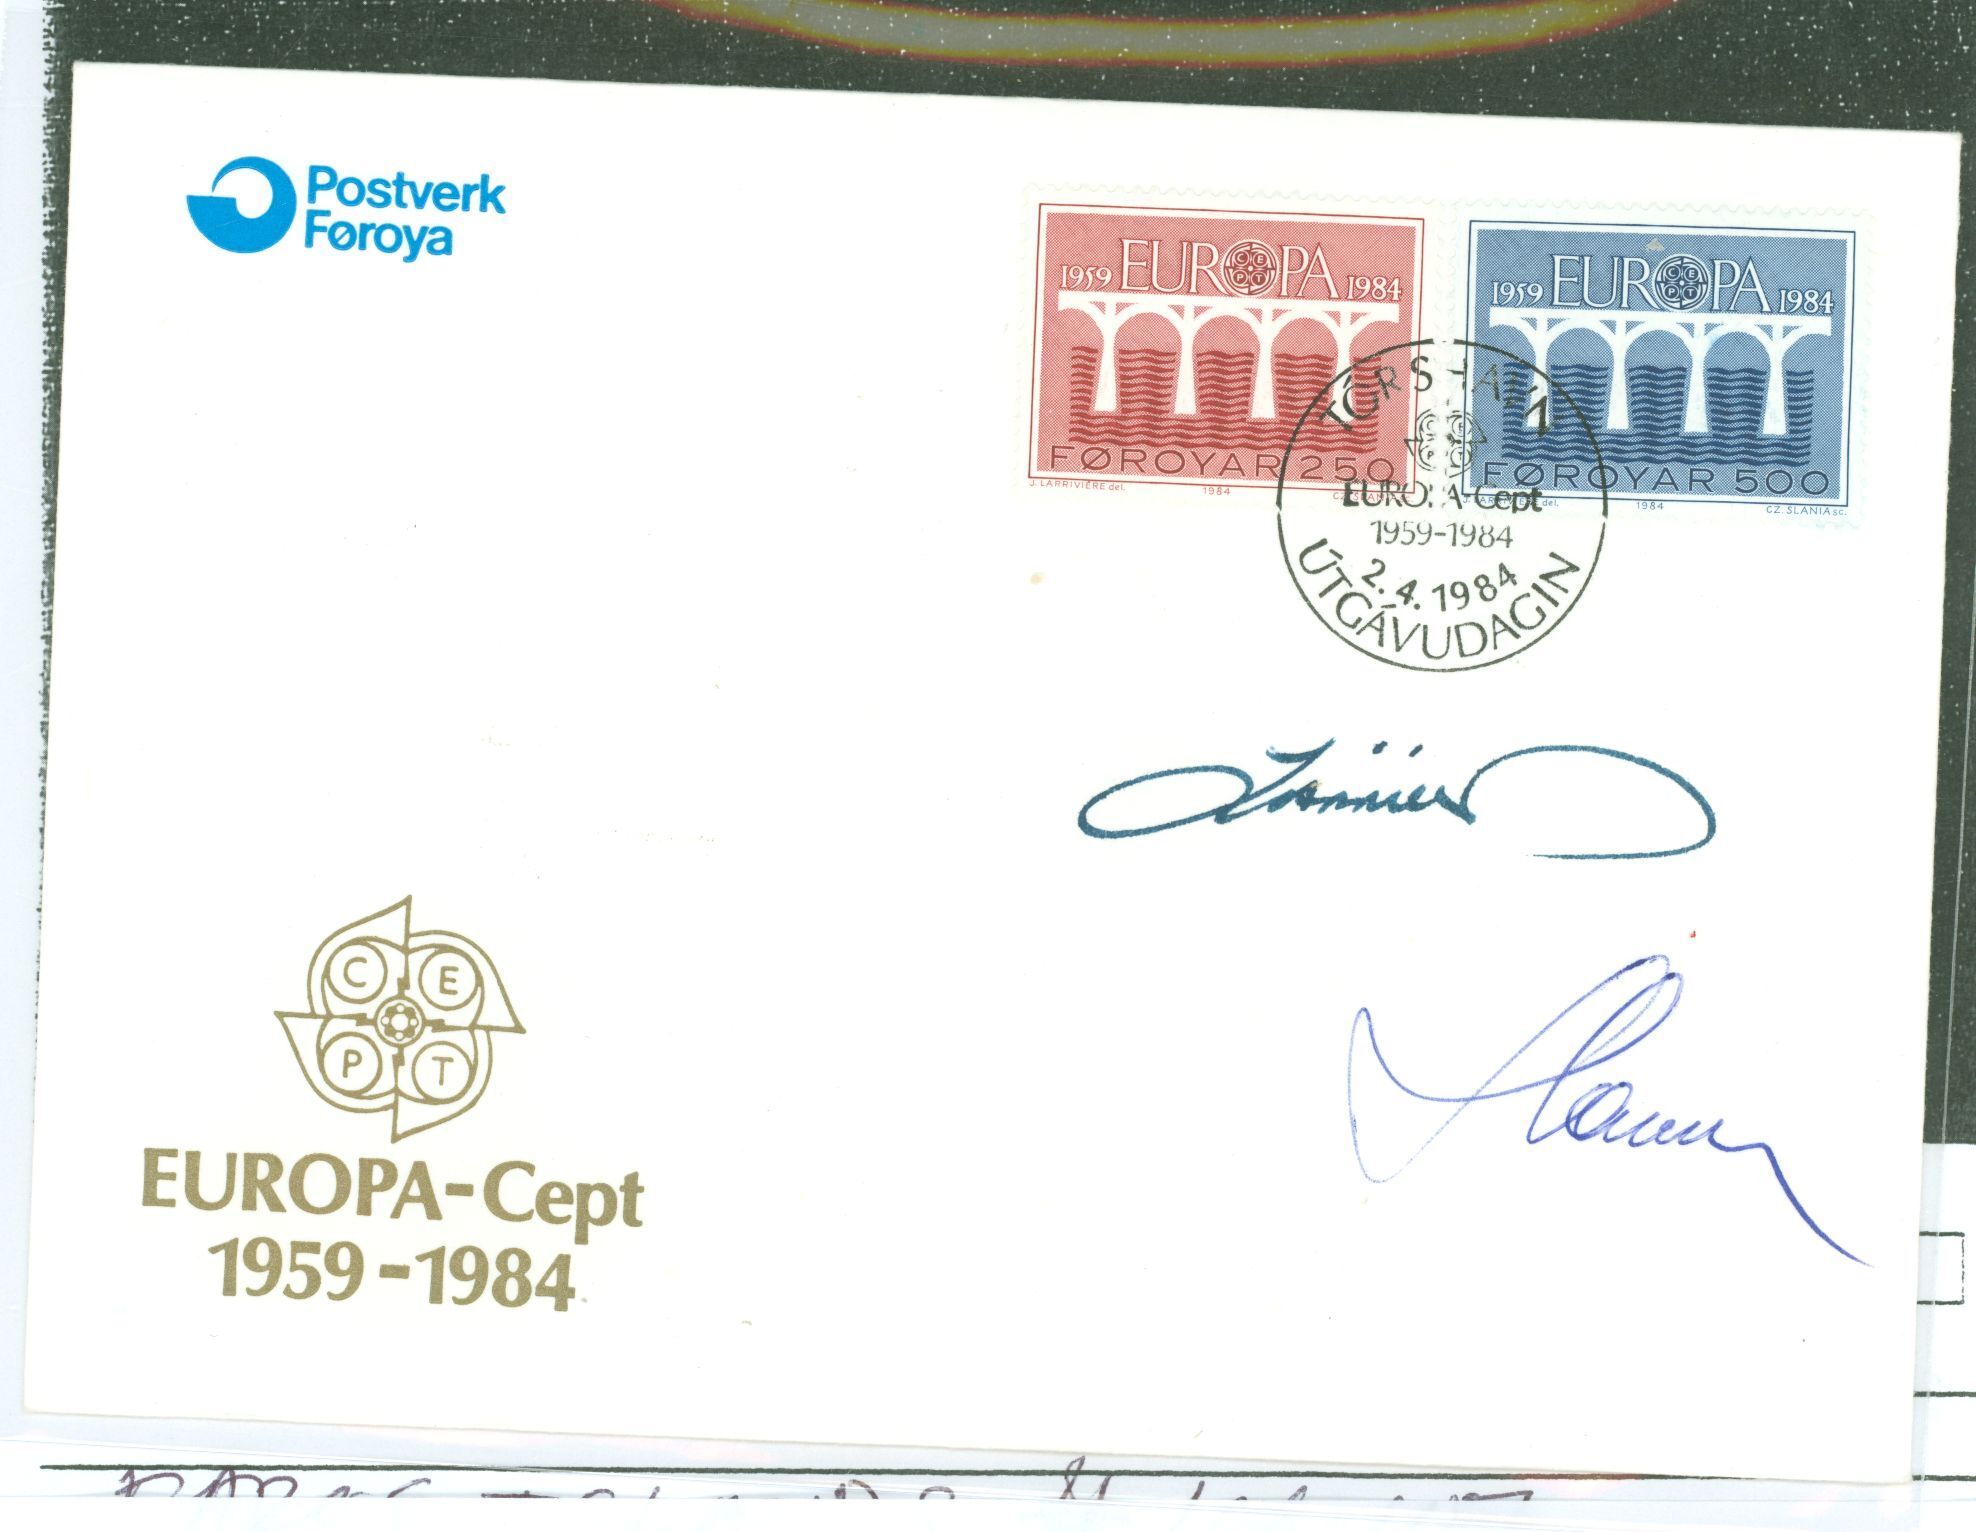 Postverk
Føroya
1959 EUROPA 1984
C E
P T
FØROYAR 250
J. LARRIVIÈRE del. 1984 CZ. SLANIA sc.
1959 EUROPA 1984
C E
P T
FØROYAR 500
J. LARRIVIÈRE del. 1984 CZ. SLANIA sc.
TÓRSHAVN
C E
P T
EUROPA-Cept
1959-1984
2.4.1984
ÚTGÁVUDAGIN
Slania
C E
P T
EUROPA-Cept
1959-1984